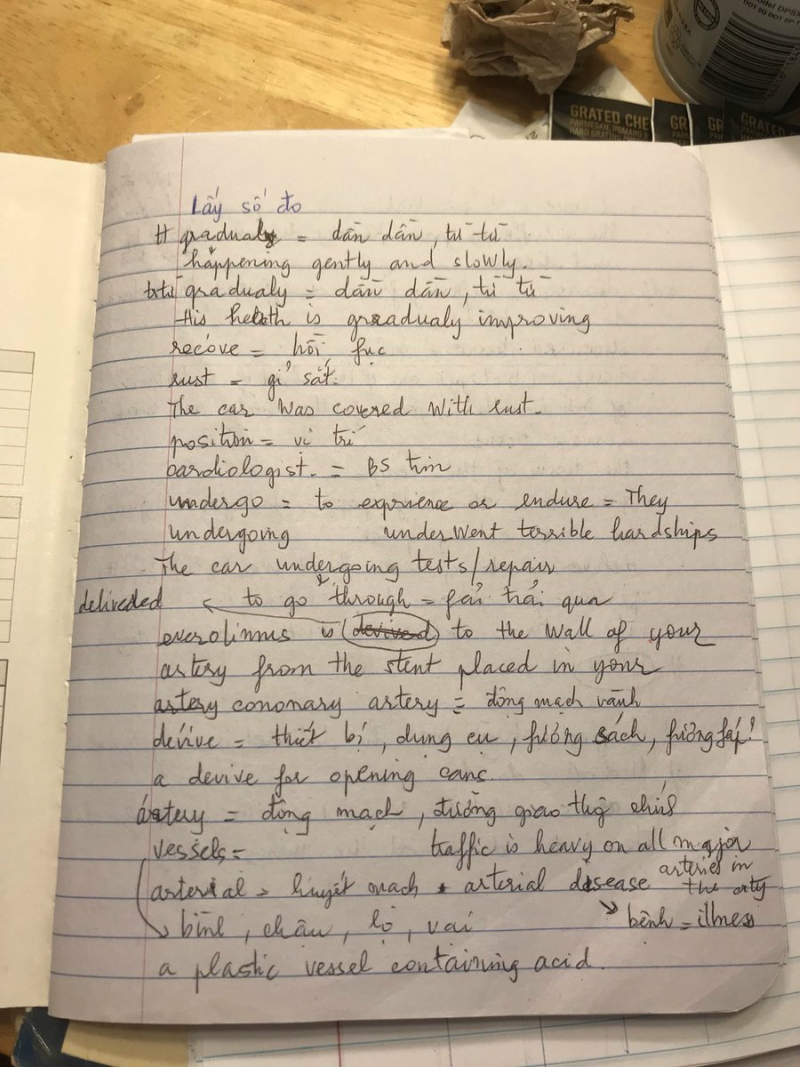 Model DPBX
GRATED CHE
PARMESAN, ROMANO &
HARD GRATING
GR
GR
GRATED
Lấy số đo
gradualy = dần dần, từ từ
happening gently and slowly.
gradualy = dần dần, từ từ
His helth is gradualy improving
recove = hồi fục
rust = gỉ sắt.
The car was covered with rust.
position = vị trí
cardiologist. = BS tim
undergo = to exprience or endure = They
undergoing underwent terrible hardships
The car undergoing tests/repair
deliveded to go through = fải trải qua
everolimus is devived to the wall of your
artery from the stent placed in your
artery cononary artery = động mạch vành
devive = thiết bị, dụng cụ, fương sách, fương fáp
a devive for opening canc.
artery = động mạch, đường giao thg chính
vessels = traffic is heavy on all major
arteries in
arterial = huyết mạch arterial disease the city
bình, chậu, lọ, vại bệnh = illness
a plastic vessel containing acid.